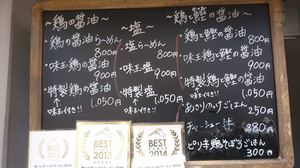 ～鶏の醤油～
鶏の醤油らーめん
800円
・味玉鶏の醤油
900円
・特製鶏の醤油
1,050円
味玉付き!!
～塩～
・塩らーめん
800円
・味玉塩
900円
・特製塩
1,050円
味玉付き!!
～鶏と鰹の醤油～
・鶏と鰹の醤油
800円
・味玉鶏と鰹の醤油
900円
・特製鶏と鰹の醤油
1,050円
ごはん
250円
880円
ピリ辛鶏そぼろごはん
300円
BEST
2013
BEST
2014